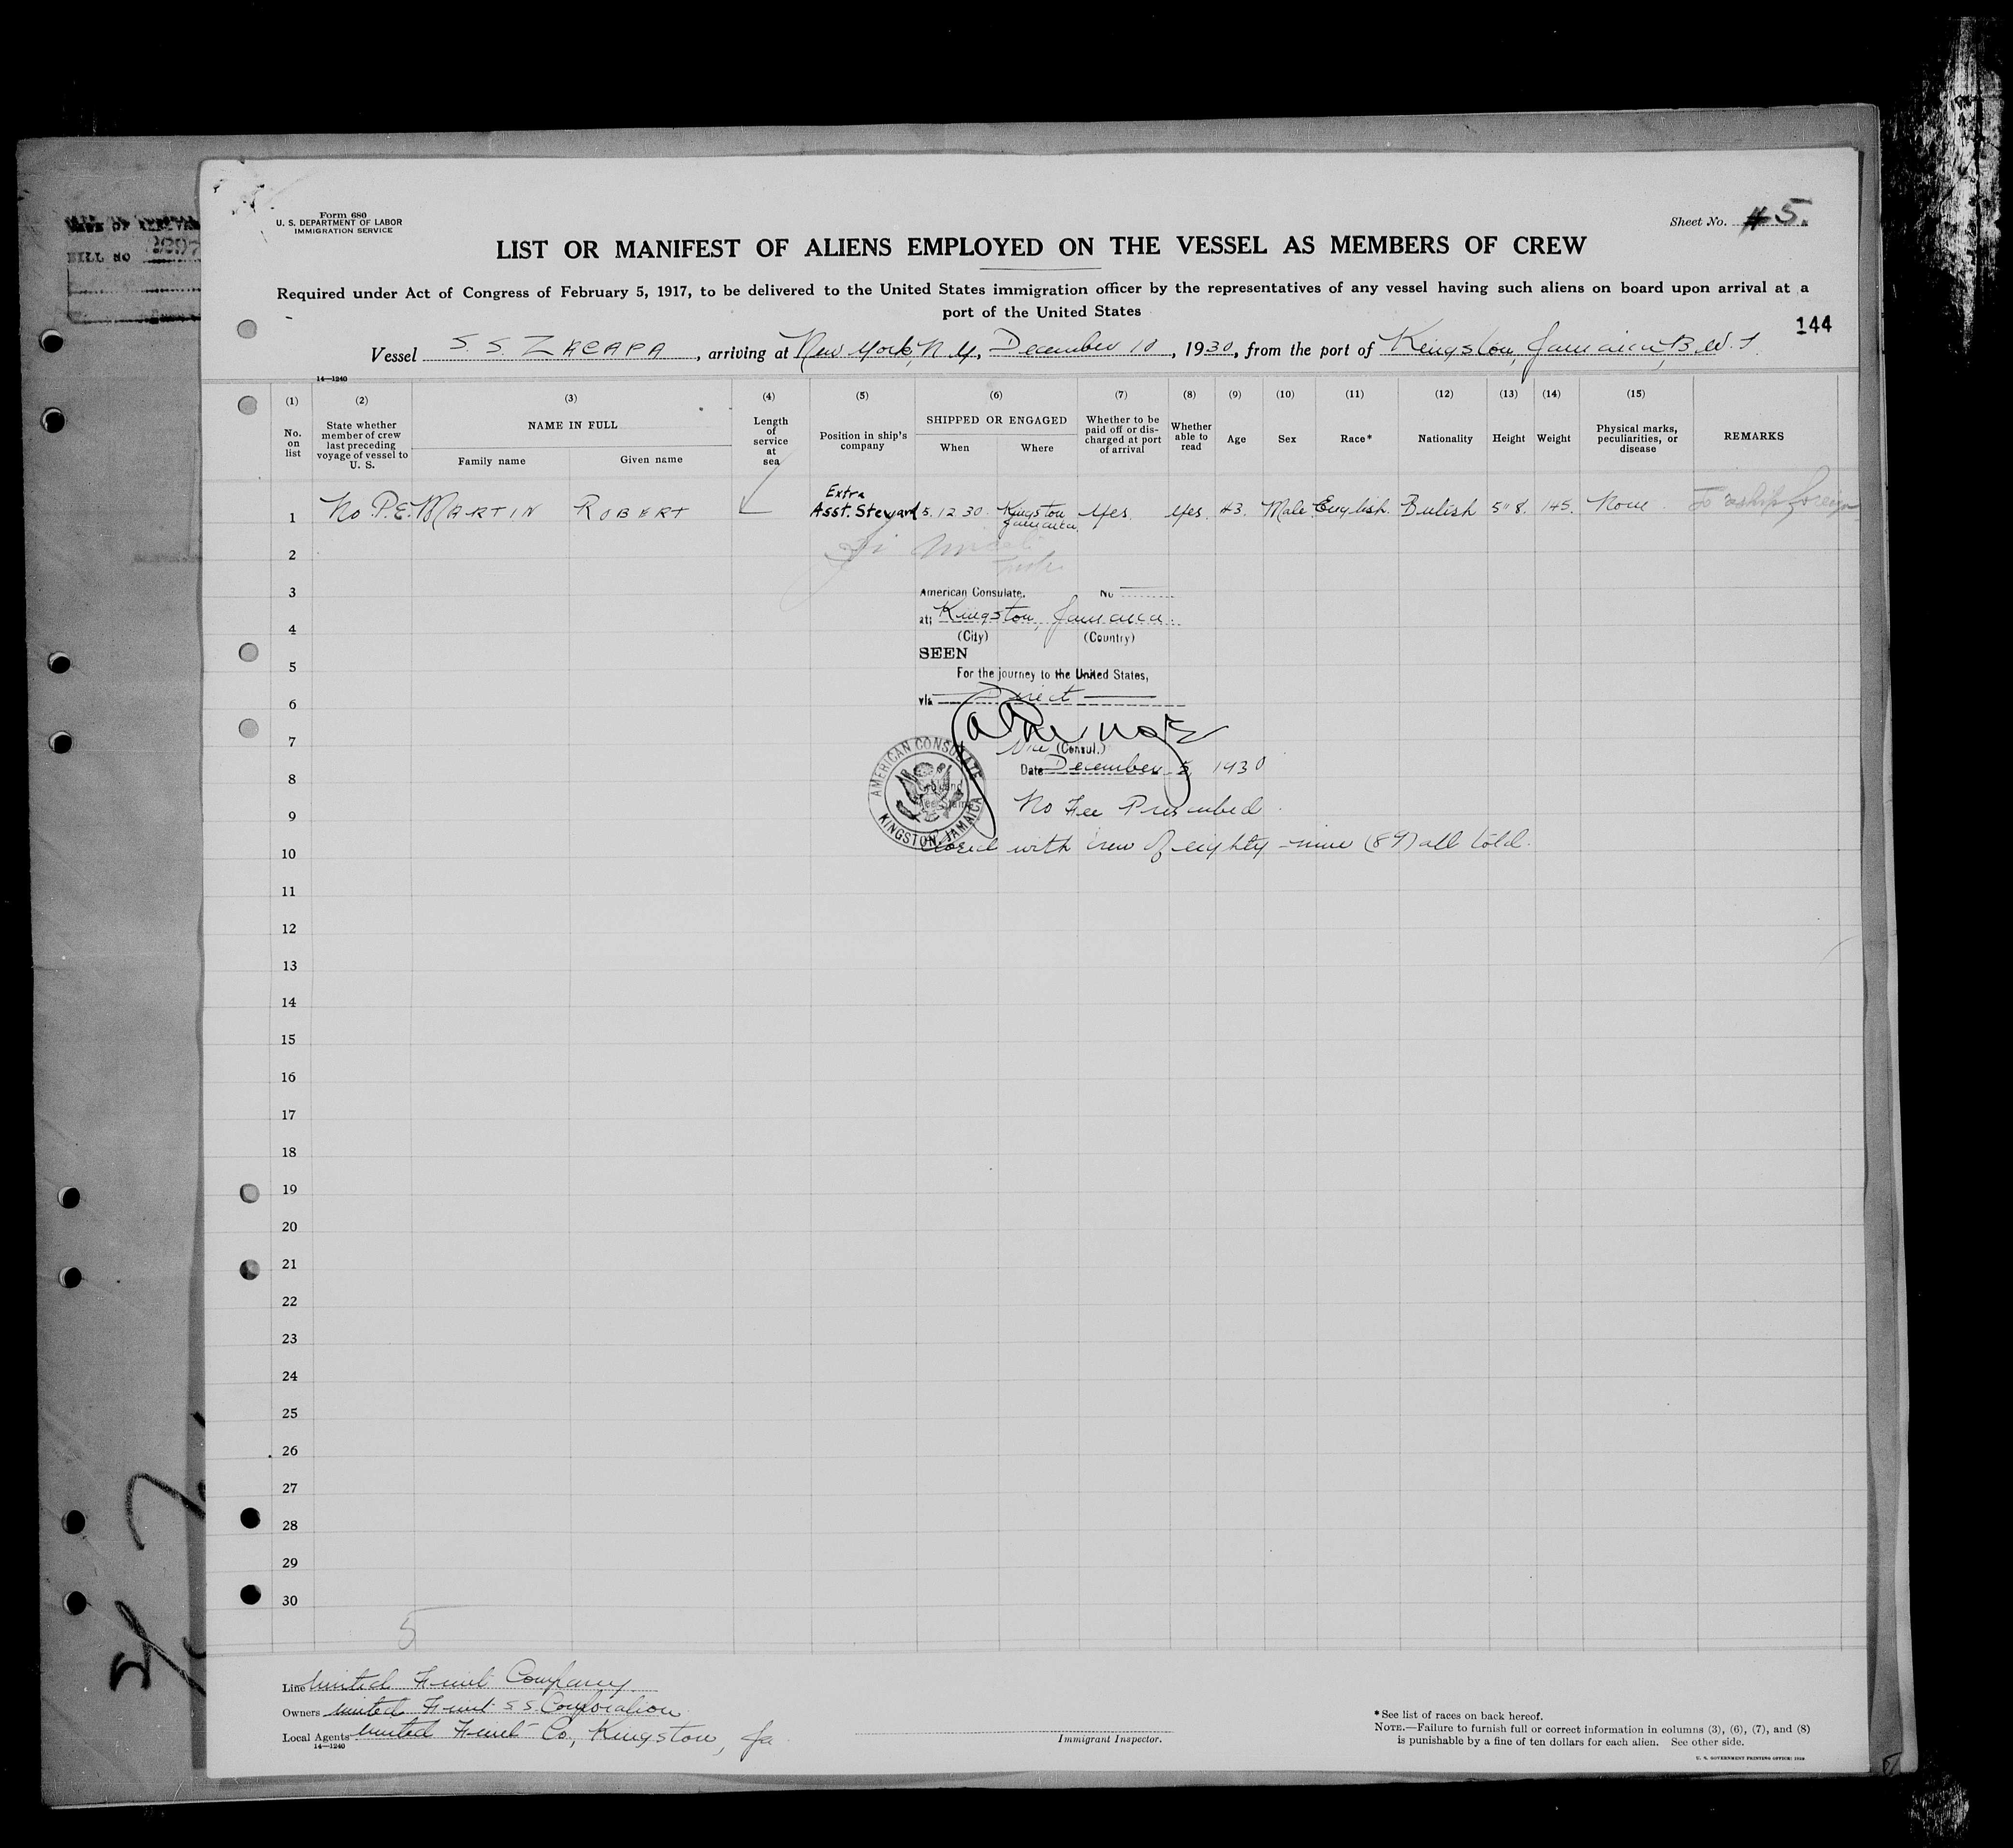 BILL NO 2297
Form 680
U. S. DEPARTMENT OF LABOR
IMMIGRATION SERVICE
Sheet No. 5.
LIST OR MANIFEST OF ALIENS EMPLOYED ON THE VESSEL AS MEMBERS OF CREW
Required under Act of Congress of February 5, 1917, to be delivered to the United States immigration officer by the representatives of any vessel having such aliens on board upon arrival at a
port of the United States
144
Vessel S. S. ZACAPA, arriving at New York, N.Y., December 10, 1930, from the port of Kingston, Jamaica, B.W.I.
14—1240
(1) (2) (3) (4) (5) (6) (7) (8) (9) (10) (11) (12) (13) (14) (15)
No. on list
State whether member of crew last preceding voyage of vessel to U. S.
NAME IN FULL
Family name Given name
Length of service at sea
Position in ship's company
SHIPPED OR ENGAGED
When Where
Whether to be paid off or discharged at port of arrival
Whether able to read
Age
Sex
Race*
Nationality
Height
Weight
Physical marks, peculiarities, or disease
REMARKS
1 No P.E. MARTIN ROBERT Extra Asst. Steward 5.12.30. Kingston Jamaica Yes. Yes. 43. Male. English. British 5"8. 145. None To reship foreign
2
3
4
5
6
7
8
9
10
11
12
13
14
15
16
17
18
19
20
21
22
23
24
25
26
27
28
29
30
American Consulate. No
at; Kingston, Jamaica.
(City) (Country)
SEEN
For the journey to the United States,
via Direct
Vice (Consul.)
Date December 5, 1930
AMERICAN CONSULATE
KINGSTON, JAMAICA
No Fee Prescribed.
Closed with crew of eighty-nine (89) all told.
5
Line United Fruit Company.
Owners United Fruit S.S. Corporation
Local Agents United Fruit Co., Kingston, Ja.
14—1240
Immigrant Inspector.
*See list of races on back hereof.
NOTE.—Failure to furnish full or correct information in columns (3), (6), (7), and (8)
is punishable by a fine of ten dollars for each alien. See other side.